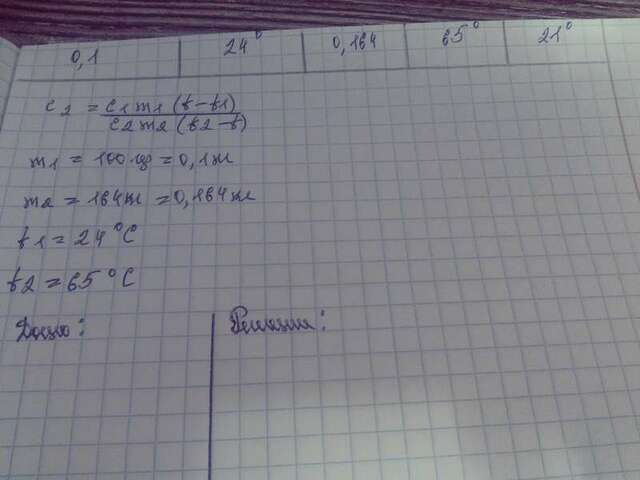 0,1 24° 0,164 65° 21°
c2 = c1m1(t-t1)
c2m2(t2-t)
m1 = 100 гр = 0,1 кг
m2 = 164 кг = 0,164 кг
t1 = 24°C
t2 = 65°C
Дано: Решение: